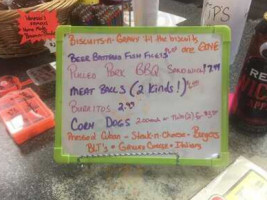 BISCUITS-n-GRAVY
the biscuits
are GONE
BEER BATTERED FISH FILETS
PULLED PORK BBQ SANDWICH 3.99
MEAT BALLS (2 kinds!)
BURRITOS 2.99
CORN DOGS
Pressed Cuban - Steak-n-Cheese - Burgers
BLT's + Grilled Cheese + Italians